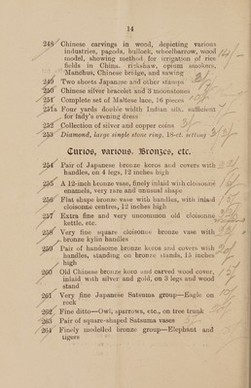 14
248 Chinese carvings in wood, depicting various
industries, pagoda, bullock, wheelbarrow, wood
model, showing method for irrigation of rice
fields in China. rickshaw, opium smokers,
Manchus, Chinese bridge, and sawing
249 Two sheets Japanese and other stamps
250 Chinese silver bracelet and 3 moonstones
251 Complete set of Maltese lace, 16 pieces
251a Four yards double width Indian silk, sufficient
for lady's evening dress
252 Collection of silver and copper coins
253 Diamond, large single stone ring, 18-ct. setting
Curios, various. Bronzes, etc.
254 Pair of Japanese bronze koros and covers with
handles, on 4 legs, 12 inches high
255 A 12-inch bronze vase, finely inlaid with cloisonne
enamels, very rare and unusual shape
256 Flat shape bronze vase with handles, with inlaid
cloisonne centres, 12 inches high
257 Extra fine and very uncommon old cloisonne
kettle, etc.
258 Very fine square cloisonne bronze vase with
bronze kylin handles
259 Pair of handsome bronze koros and covers with
handles, standing on bronze stands, 15 inches
high
260 Old Chinese bronze koro and carved wood cover,
inlaid with silver and gold, on 3 legs and wood
stand
261 Very fine Japanese Satsuma group—Eagle on
rock
262 Fine ditto—Owl, sparrows, etc., on tree trunk
263 Pair of square-shaped Satsuma vases
264 Finely modelled bronze group—Elephant and
tigers